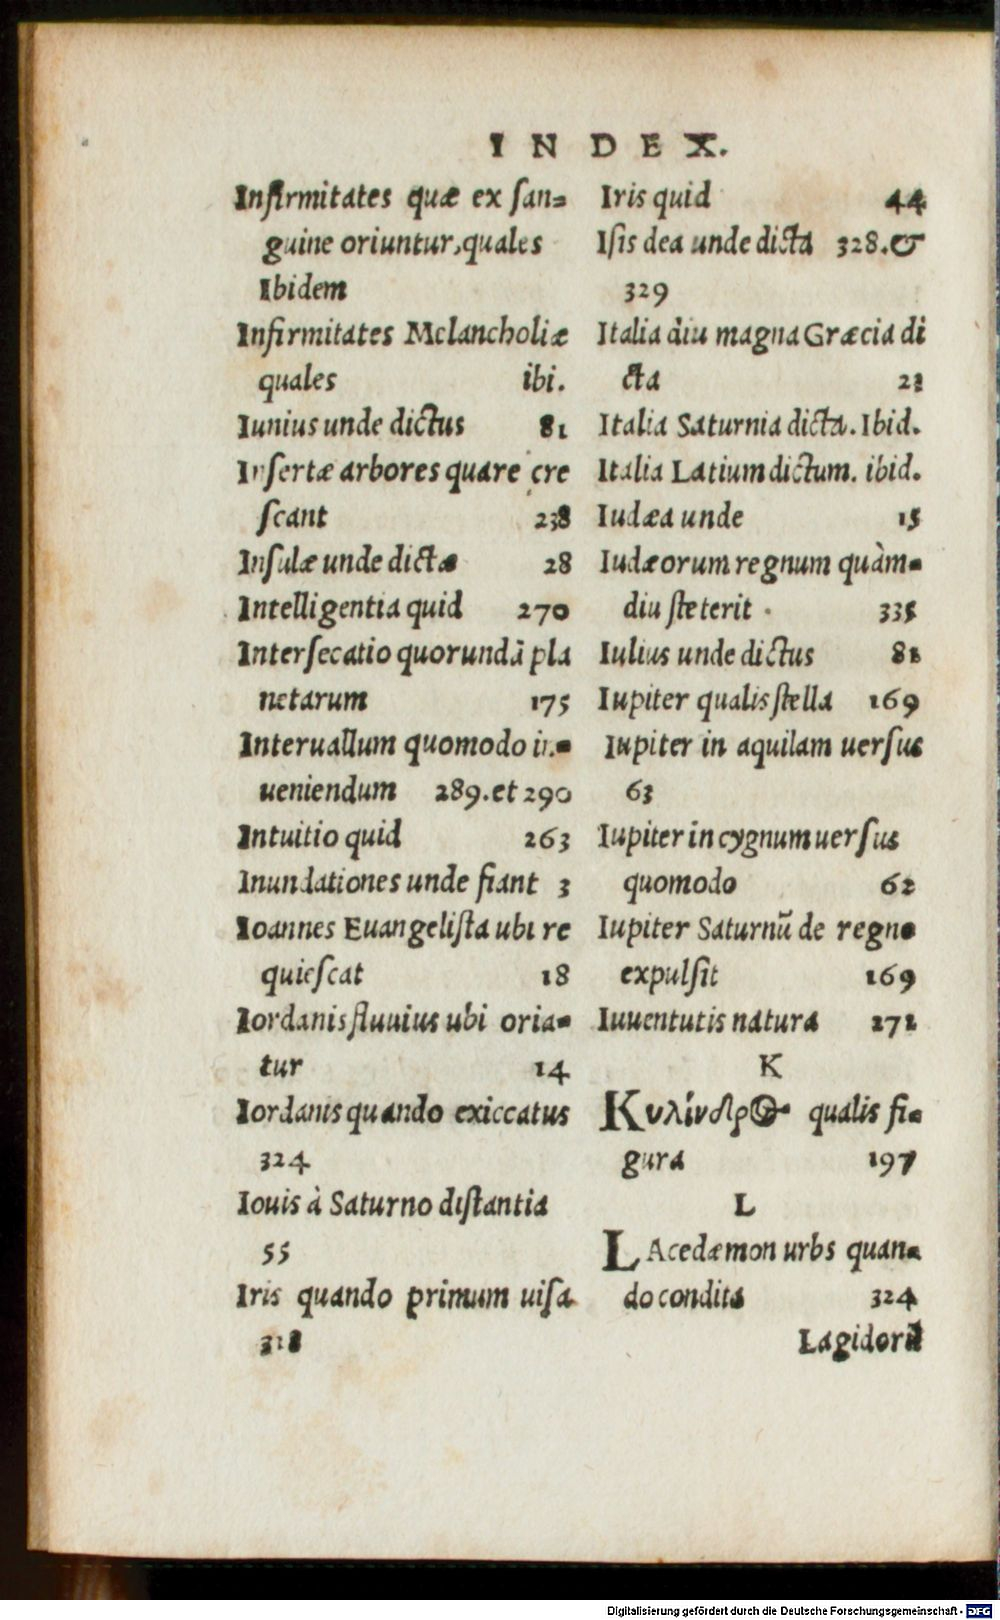 INDEX.
Infirmitates quæ ex ſan-
guine oriuntur, quales
Ibidem
Infirmitates Melancholiæ
quales ibi.
Iunius unde dictus 81
Inſertæ arbores quare cre
ſcant 238
Inſulæ unde dictæ 28
Intelligentia quid 270
Interſecatio quorundã pla
netarum 175
Interuallum quomodo in-
ueniendum 289. et 290
Intuitio quid 263
Inundationes unde fiant 3
Ioannes Euangeliſta ubi re
quieſcat 18
Iordanis fluuius ubi oria-
tur 14
Iordanis quando exiccatus
324
Iouis à Saturno diſtantia
55
Iris quando primum uiſa
318
Iris quid 44
Iſis dea unde dicta 328. &
329
Italia diu magna Græcia di
cta
Italia Saturnia dicta. Ibid.
Italia Latium dictum. ibid.
Iudæa unde 15
Iudæorum regnum quàm-
diu ſteterit 335
Iulius unde dictus 81
Iupiter qualis ſtella 169
Iupiter in aquilam uerſus
63
Iupiter in cygnum uerſus
quomodo 62
Iupiter Saturnũ de regno
expulſit 169
Iuuentutis natura 272
K
Κυλίνδρος qualis fi-
gura 197
L
LAcedæmon urbs quan-
do condita 324
Lagidorũ
Digitalisierung gefördert durch die Deutsche Forschungsgemeinschaft - DFG